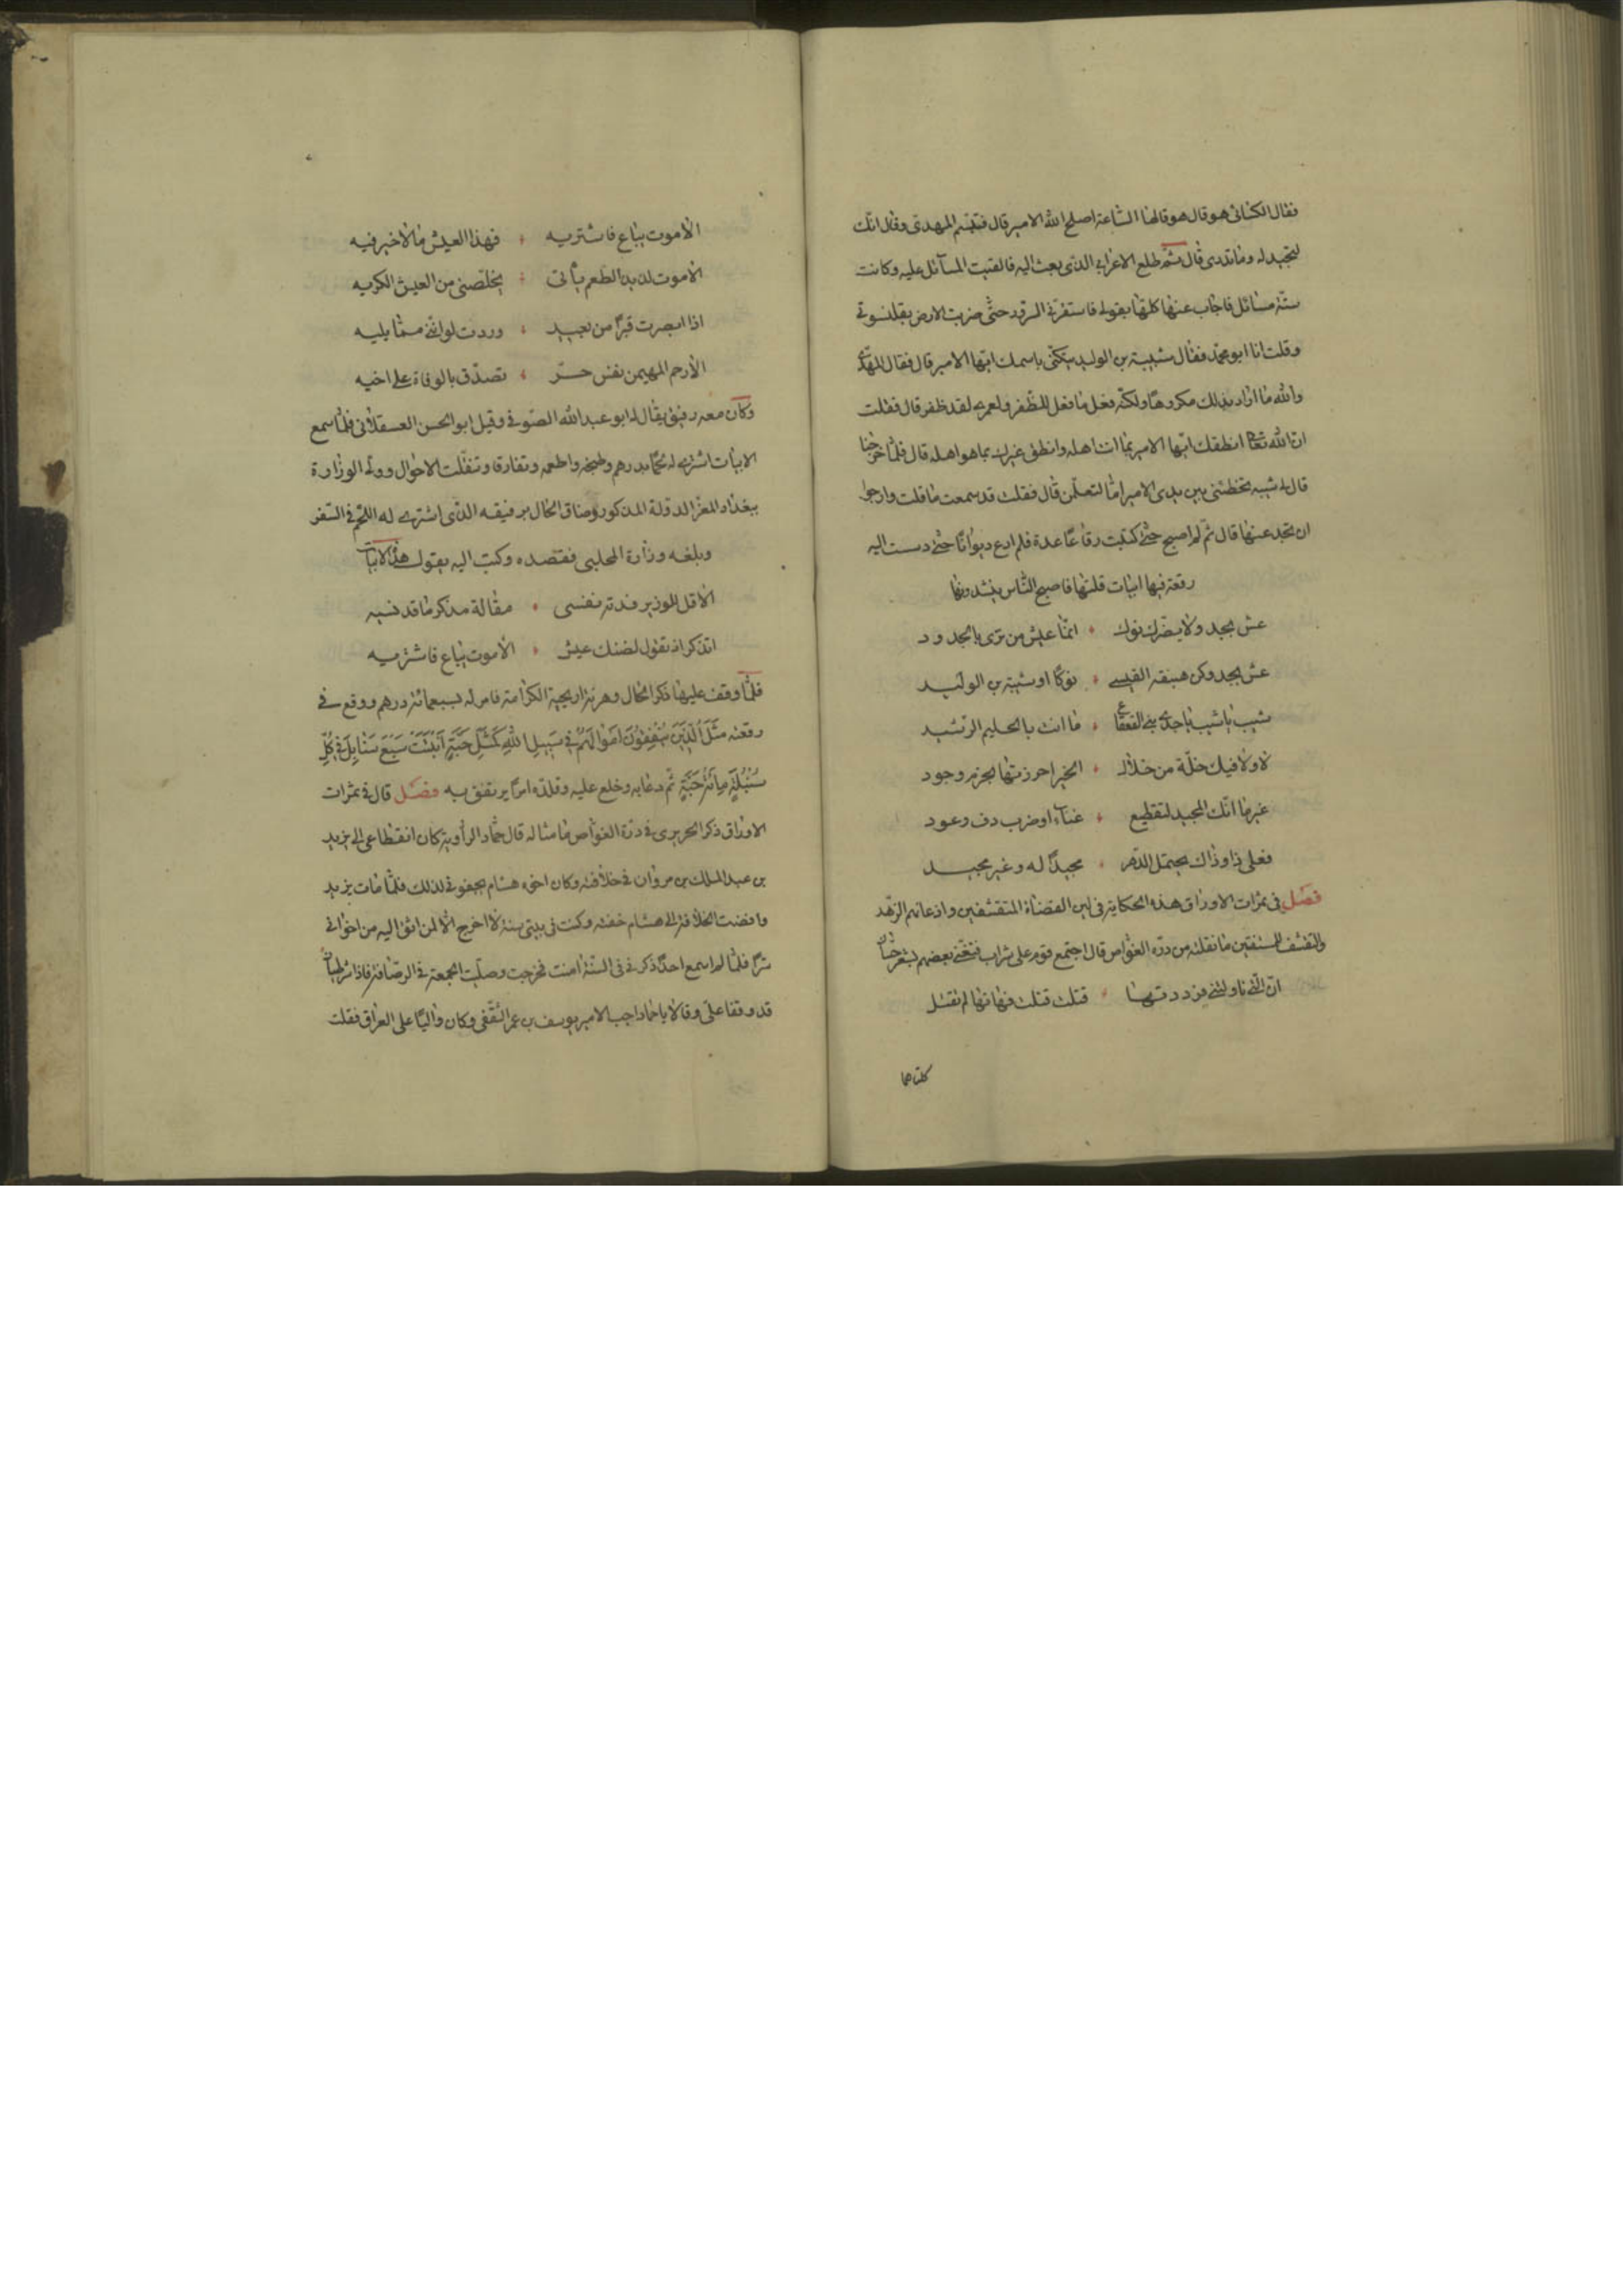 فقال الكسائى هو قال هو قالها الساعة اصلح الله الامير قال فتبسم المهدى وقال انك
لتجيد له وما تدرى قال ثم طلع الاعرابى الذى بعث اليه فالقيت المسآئل عليه وكانت
ستة مسائل فاجاب عنها كلها بقولى فاستفزنى السرور حتى ضربت الارض بقلنسوتى
وقلت انا ابو محمد فقال شيبة بن الوليد يتكنى باسمك ايها الامير قال فقال المهدى
والله ما اراد بذلك مكروها ولكنه فعل ما فعل للظفر ولعمرى لقد ظفر قال فقلت
ان الله تعالى انطقك ايها الامير بما انت اهله وانطق غيرك بما هو اهله قال فلما خرجنا
قال لى شيبة تخطئنى بين يدى الامير اما لتعلمن قال فقلت قد سمعت ما قلت وارجوا
ان تجد عنها قال ثم لم اصبح حتى كتبت رقاعا عدة فلم ادع ديوانا حتى دسست اليه
رقعة فيها ابيات قلتها فاصبح الناس ينشدونها
عش بجد ولا يضرك نوك ٠ انما عيش من ترى بالجدود
عش بجد وكن هبنقة القيسى ٠ نوكا او شيبة بن الوليد
شيب يا شيب يا جدى بنى القعقاع ٠ ما انت بالحليم الرشيد
لا ولا فيك خلة من خلال ٠ الخير احرزتها بحزم وجود
غير ما انك المجيد لتقطيع ٠ غناء او ضرب دف وعود
فعلى ذا وذاك يحتمل الدهر ٠ مجيدا له وغير مجيد
فصل فى ثمرات الاوراق هذه الحكاية فى لين القضاة المتقشفين واذعانهم الزهد
والتقشف للمستفتين ما نقلته من درة الغواص قال اجتمع قوم على شراب فتغنى بعضهم بشعر حسان
ان التى ناولتنى فرددتها ٠ قتلت قتلت فهاتها لم تقتل
كلتاهما
الا موت يباع فاشتريه ٠ فهذا العيش ما لا خير فيه
الا موت لذيذ الطعم يأتى ٠ يخلصنى من العيش الكريه
اذا ابصرت قبرا من بعيد ٠ وددت لو اننى مما يليه
الا رحم المهيمن نفس حر ٠ تصدق بالوفاة على اخيه
وكان معه رفيق يقال له ابو عبد الله الصوفى وقيل ابو الحسن العسقلانى فلما سمع
الابيات اشترى له لحما بدرهم وطبخه واطعمه وتفارقا وتنقلت الاحوال وولى الوزارة
ببغداد لمعز الدولة المذكور وضاق الحال برفيقه الذى اشترى له اللحم فى السفر
وبلغه وزارة المحلبى فقصده وكتب اليه يقول هذه الابيات
الا قل للوزير فدته نفسى ٠ مقالة مذكر ما قد نسيه
اتذكر اذ تقول لضنك عيش ٠ الا موت يباع فاشتريه
فلما وقف عليها ذكر الحال وهزته اريحية الكرامة فامر له بسبعمائة درهم ووقع فى
رقعته مَثَلُ الَّذِينَ يُنْفِقُونَ اَمْوَالَهُمْ فِى سَبِيلِ اللهِ كَمَثَلِ حَبَّةٍ اَنْبَتَتْ سَبْعَ سَنَابِلَ فِى كُلِّ
سُنْبُلَةٍ مِائَةُ حَبَّةٍ ثم دعا به وخلع عليه وقلده امرا يرتفق به فصل قال فى ثمرات
الاوراق ذكر الحريرى فى درة الغواص ما مثاله قال حماد الراوية كان انقطاعى الى يزيد
بن عبد الملك بن مروان فى خلافته وكان اخى هشام يجفونى لذلك فلما مات يزيد
وافضت الخلافة الى هشام خفته وكنت فى بيتى سنة لا اخرج الا لمن اثق اليه من اخوانى
سرا فلما لم اسمع احدا ذكرنى فى السنة امنت فخرجت وصليت الجمعة فى الرصافة فاذا شرطيان
قد وقفا على وقالا يا حماد اجب الامير يوسف بن عمر الثقفى وكان واليا على العراق فقلت